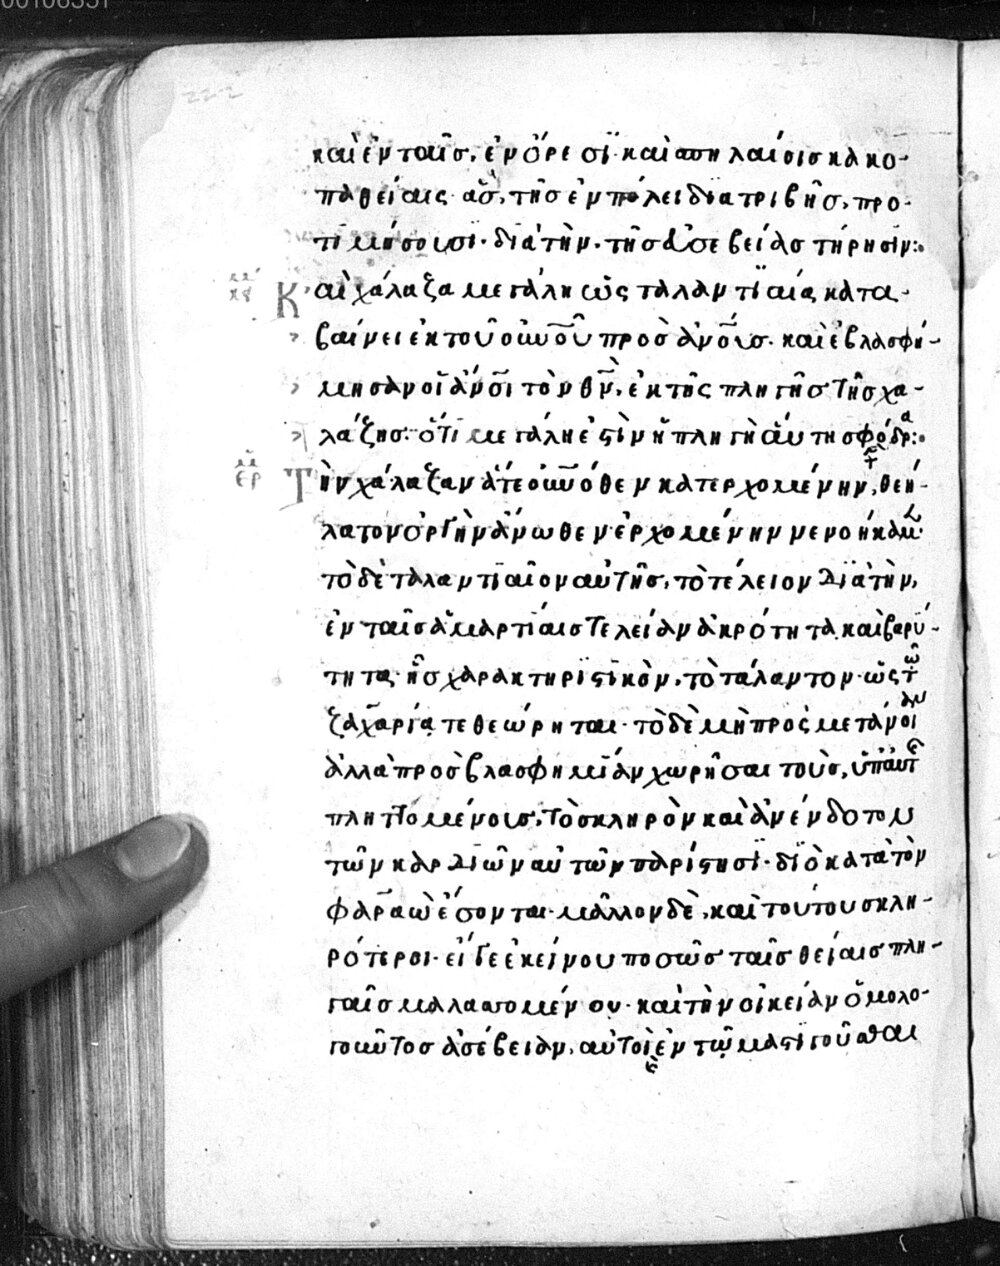 καὶ ἐν ταῖς, ἐν ὄρεσϊ· καὶ σπηλαίοις κακο-
παθείαις· ἃς, τῆς ἐν πόλει διατριβῆς, προ-
τϊμήσουσι· διὰ τὴν, τῆς ἀσεβείας τήρησϊν:
Καὶ χάλαζα μεγάλη ὡς ταλαντϊαία κατα-
βαίνει ἐκ τοῦ οὐνοῦ πρὸς ἀνοὺς· καὶ ἐβλασφή-
μησαν οἱ ἀνοι τὸν θν, ἐκ τῆς πληγῆς τῆς χα-
λάζης· ὅτι μεγάλη ἐστὶν ἡ πληγὴ αὐτη σφόδρα:
Τὴν χάλαζαν ἅτε οὐνόθεν κατερχομένην, θεή-
λατον ὀργὴν ἄνωθεν ἐρχομένην νενοήκαμ
τὸ δὲ ταλαντϊαῖον αὐτῆς, τὸ τέλειον διὰ τὴν,
ἐν ταῖς ἁμαρτίαις τελείαν ἀκρότητα καὶ βαρύ-
τητα· ἧς χαρακτηριστικὸν, τὸ τάλαντον· ὡς τῶ
ζαχαρία τεθεώρηται· τὸ δὲ μὴ πρὸς μετάνοιαν
ἀλλὰ πρὸς βλασφημίαν χωρῆσαι τοὺς, ὑπ' αὐτῆς
πληττομένους, τὸ σκληρὸν καὶ ἀνένδοτον
τῶν καρδιῶν αὐτῶν παρίστησϊ· διὸ κατὰ τὸν
φαραὼ ἔσονται· μᾶλλον δὲ, καὶ τούτου σκλη-
ρότεροι· εἴγε ἐκείνου ποσῶς ταῖς θείαις πλη-
γαῖς μαλασσομένου· καὶ τὴν οἰκείαν ὁμολο-
γοῦντος ἀσέβειαν, αὐτοὶ ἐν τῶ μαστιγοῦσθαι